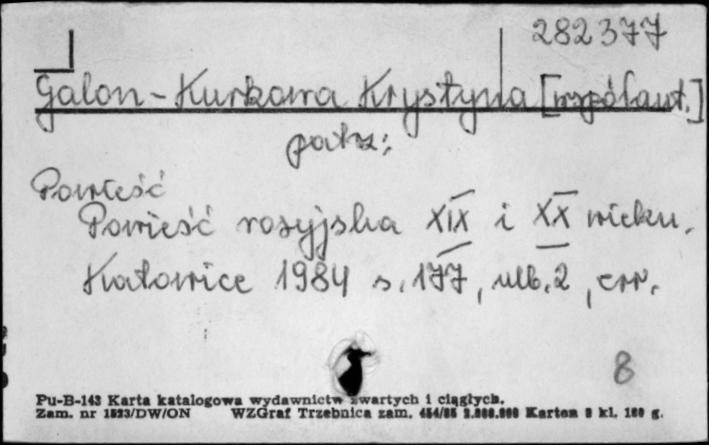 282377
Galon-Kurkowa Krystyna [współaut.]
patrz:
Powieść
Powieść rosyjska XIX i XX wieku.
Katowice 1984 s. 177, ulb. 2, err.
8
Pu-B-143 Karta katalogowa wydawnictw zwartych i ciągłych.
Zam. nr 1523/DW/ON WZGraf Trzebnica zam. Karton kl. g.